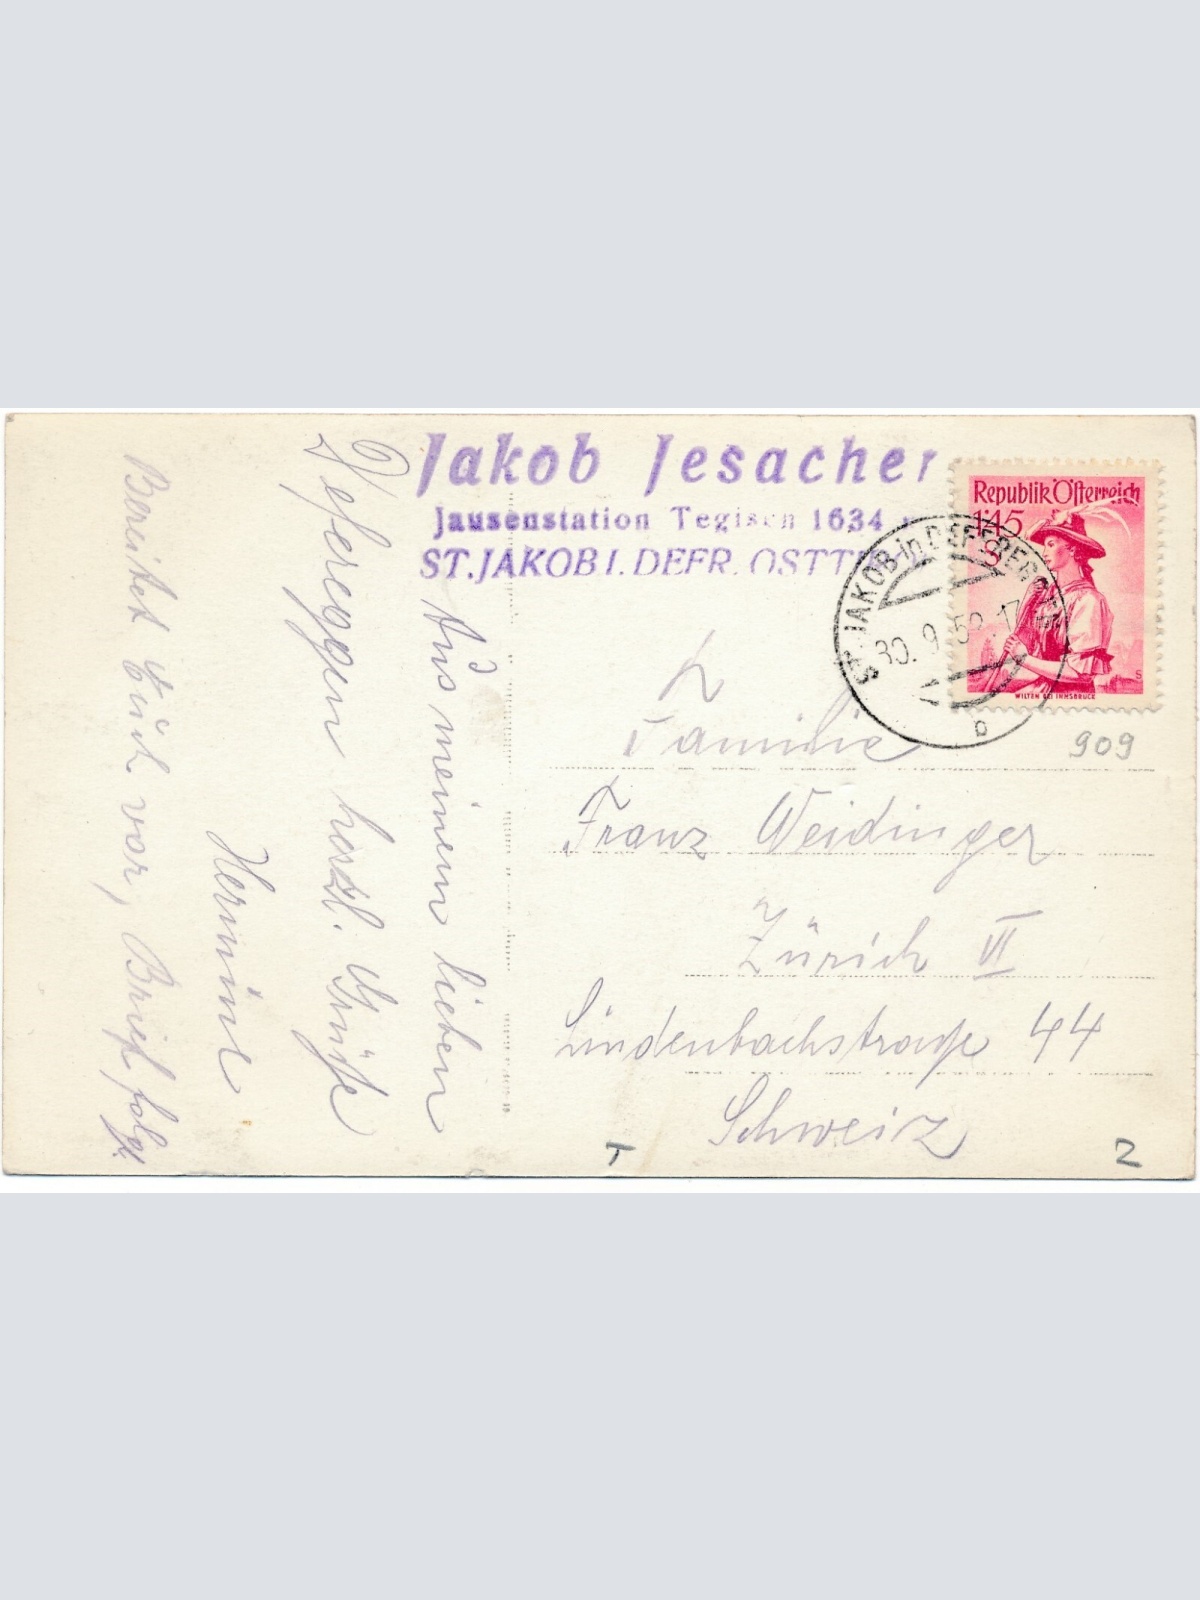 Jakob Jesacher
Jausenstation Tegisch 1634
ST. JAKOB I. DEFR. OSTTI
Republik Österreich
1'45
S
WILTEN BEI INNSBRUCK
ST. JAKOB in DEFEREGGEN
30. 9. 17
b
909
Familie
Franz Weidinger
Zürich VI
Lindenbachstraße 44
Schweiz
T
Z
Aus meinem lieben
Defereggen herzl. Grüße
Hermine
Bereitet Euch vor, Brief folgt.